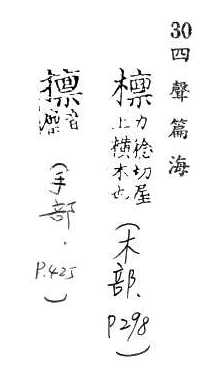 30 四聲篇海
檩 力稔切屋上横木也 (木部. P298)
㩆 音 (手部. P.425)